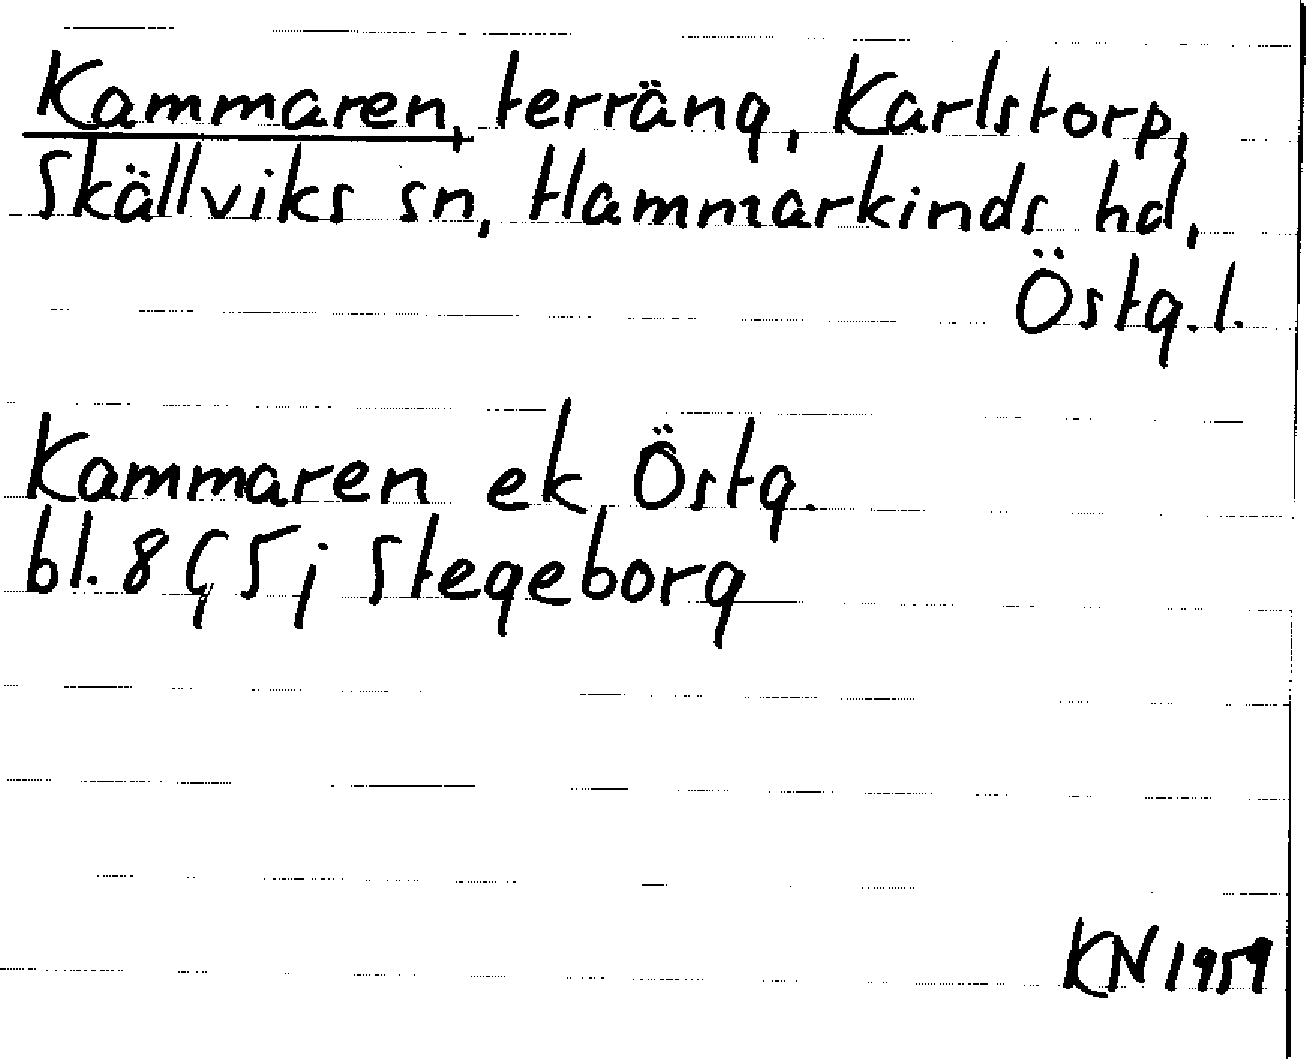 Kammaren, terräng, Karlstorp,
Skällviks sn, Hammarkinds hd,
Östg. l.
Kammaren ek Östg.
bl. 8 G5j Stegeborg
KN 1959